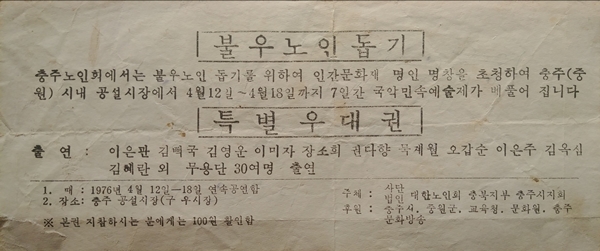 불우노인돕기
충주노인회에서는 불우노인 돕기를 위하여 인간문화재 명인 명창을 초청하여 충주(중
원) 시내 공설시장에서 4월12일~4월18일까지 7일간 국악민속예술제가 베풀어 집니다
특별우대권
출연 : 이은관 김백국 김영운 이미자 장조희 권다향 묵계월 오갑순 이은주 김옥심
김혜란 외 무용단 30여명 출연
1. 때 : 1976년 4월 12일—18일 연속공연함
2. 장소: 충주 공설시장(구 우시장)
※ 본권 지참하시는 분에게는 100원 할인함
주체 : 사단법인 대한노인회 충북지부 충주시지회
후원 : 충주시, 중원군, 교육청, 문화원, 충주
문화방송